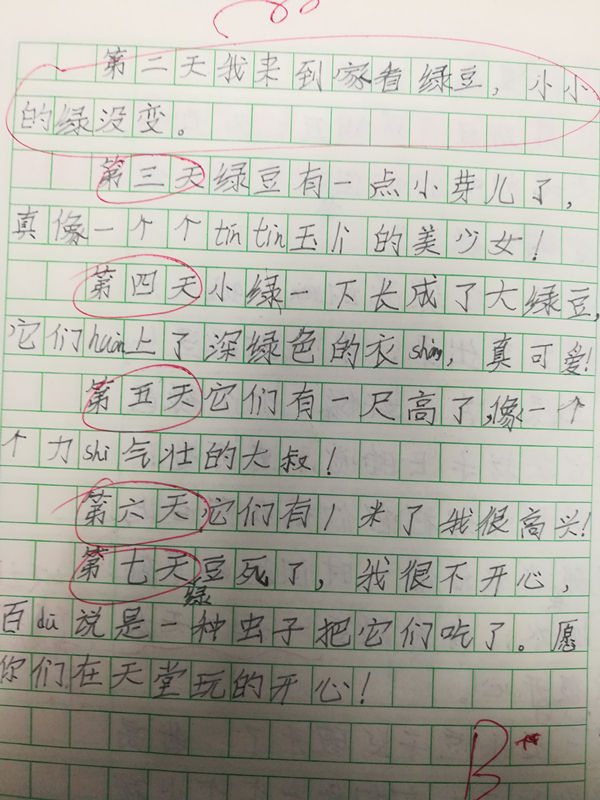 第二天我来到家看绿豆，小小
的绿没变。
第三天绿豆有一点小芽儿了，
真像一个个tíntín玉片的美少女！
第四天小绿一下长成了大绿豆，
它们huàn上了深绿色的衣shang，真可爱！
第五天它们有一尺高了，像一个
个力shì气壮的大叔！
第六天它们有1米了我很高兴！
第七天绿豆死了，我很不开心，
百dù说是一种虫子把它们吃了。愿
你们在天堂玩的开心！
B